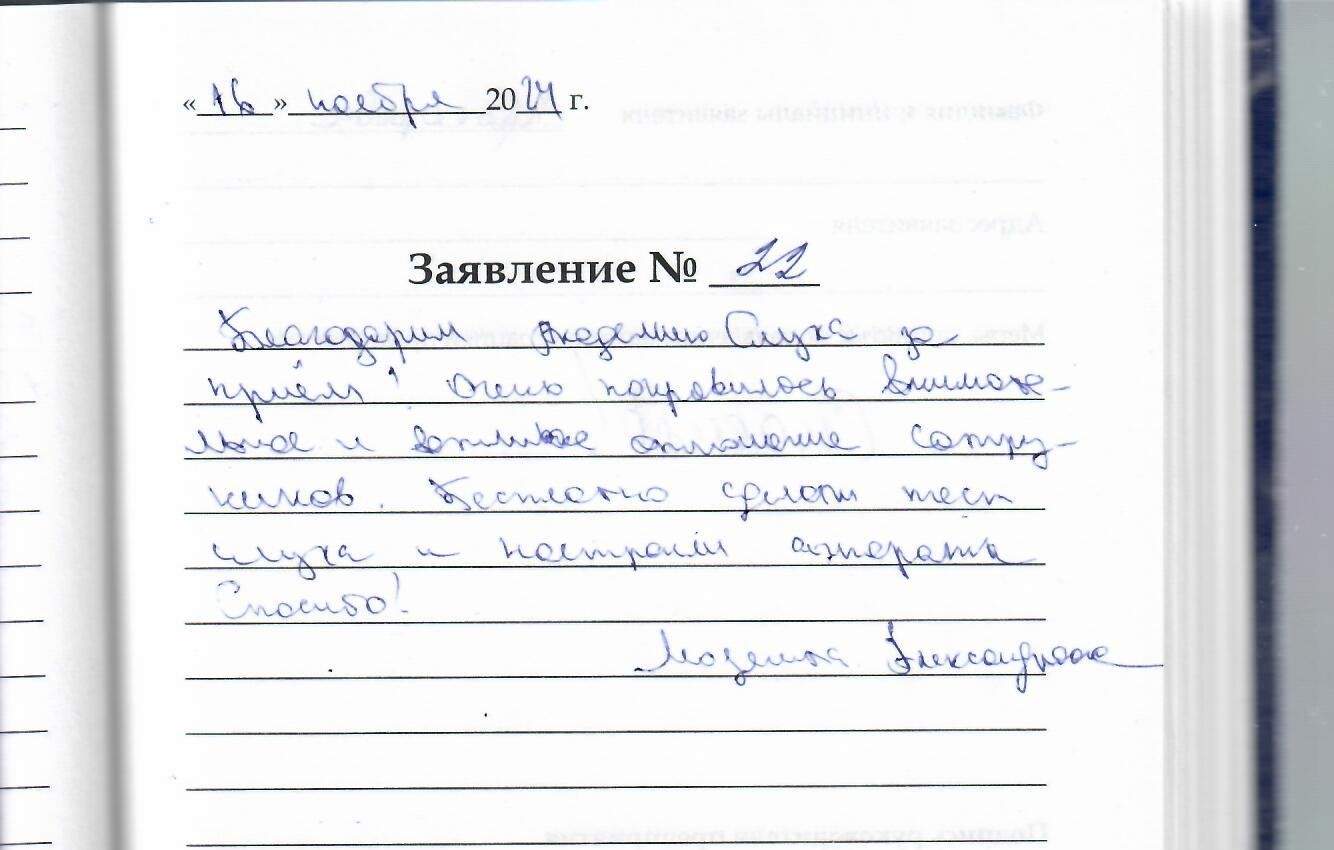 «16» ноября 2024 г.
Заявление № 22
Благодарим Академию Слуха за
приём! Очень понравилось внимате-
льное и вежливое отношение сотру-
ников. Бесплатно сделали тест
слуха и настроили аппараты
Спасибо!
Александровна